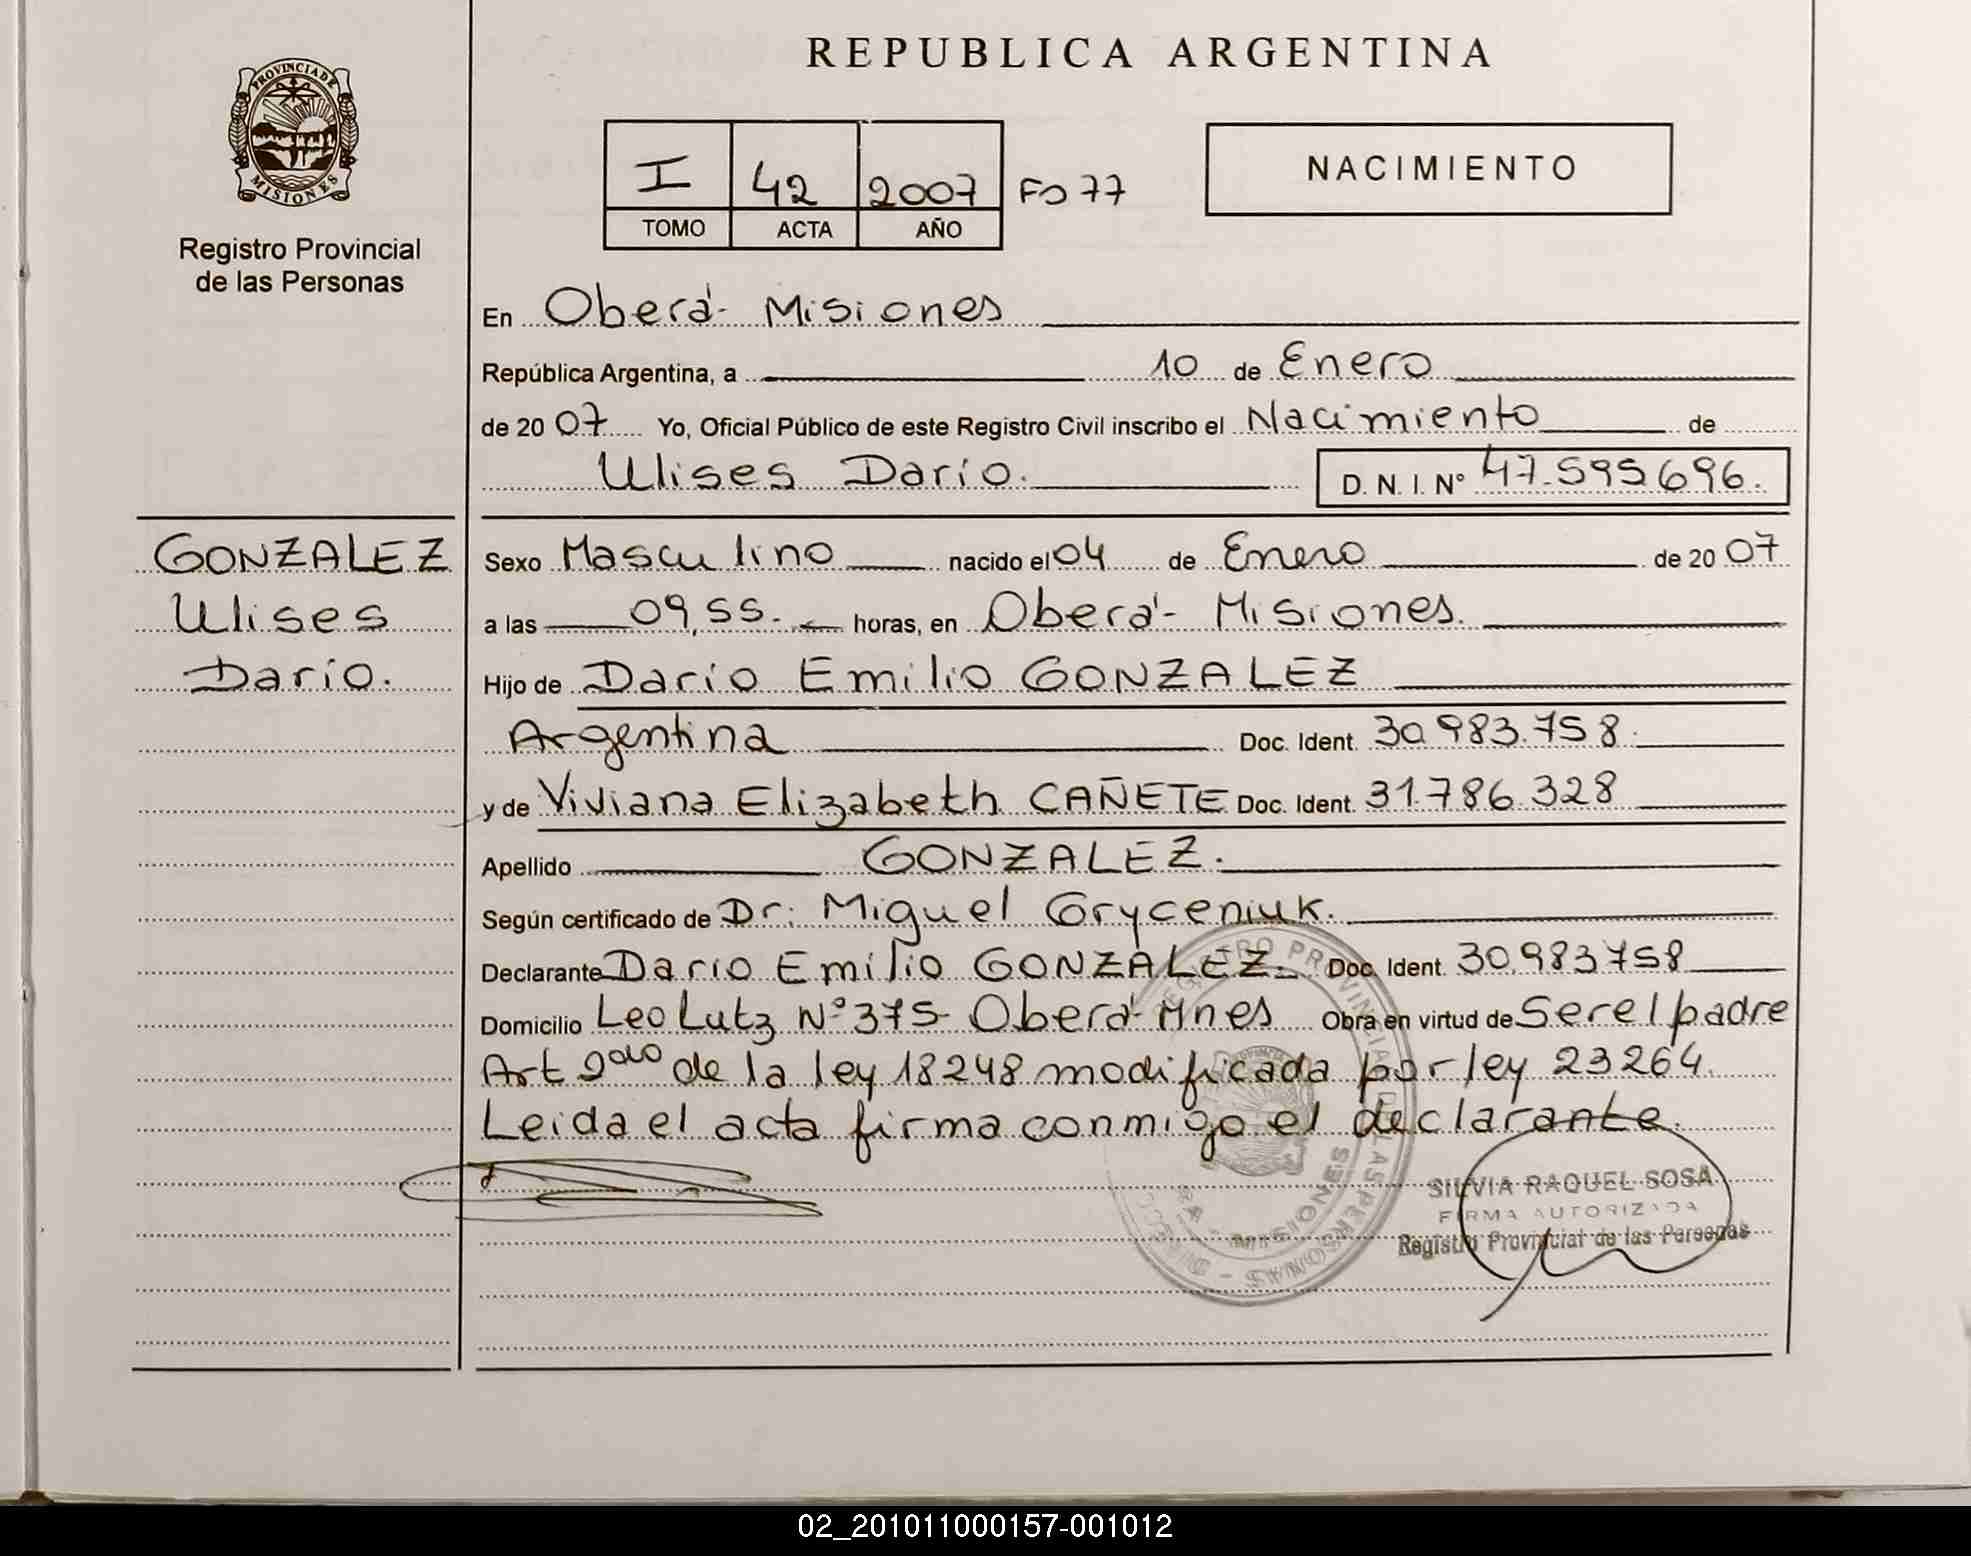 REPUBLICA ARGENTINA
PROVINCIA DE MISIONES
Registro Provincial
de las Personas
I 42 2007 Fo 77
TOMO ACTA AÑO
NACIMIENTO
En Oberá - Misiones
República Argentina, a 10 de Enero
de 2007 Yo, Oficial Público de este Registro Civil inscribo el Nacimiento de
Ulises Darío. D. N. I. Nº 47.595696.
GONZALEZ
Ulises
Darío.
Sexo Masculino nacido el 04 de Enero de 2007
a las 09,55. horas, en Oberá - Misiones.
Hijo de Darío Emilio GONZALEZ
Argentina Doc. Ident. 30.983.758.
y de Viviana Elizabeth CAÑETE Doc. Ident. 31.786.328
Apellido GONZALEZ.
Según certificado de Dr: Miguel Gryceniuk.
Declarante Darío Emilio GONZALEZ Doc. Ident. 30.983758
Domicilio Leo Lutz Nº 375 - Oberá - Mnes Obra en virtud de Ser el padre
Art 2do de la ley 18248 modificada por ley 23264.
Leída el acta firma conmigo el declarante.
SILVIA RAQUEL SOSA
FIRMA AUTORIZADA
Registro Provincial de las Personas
02_201011000157-001012